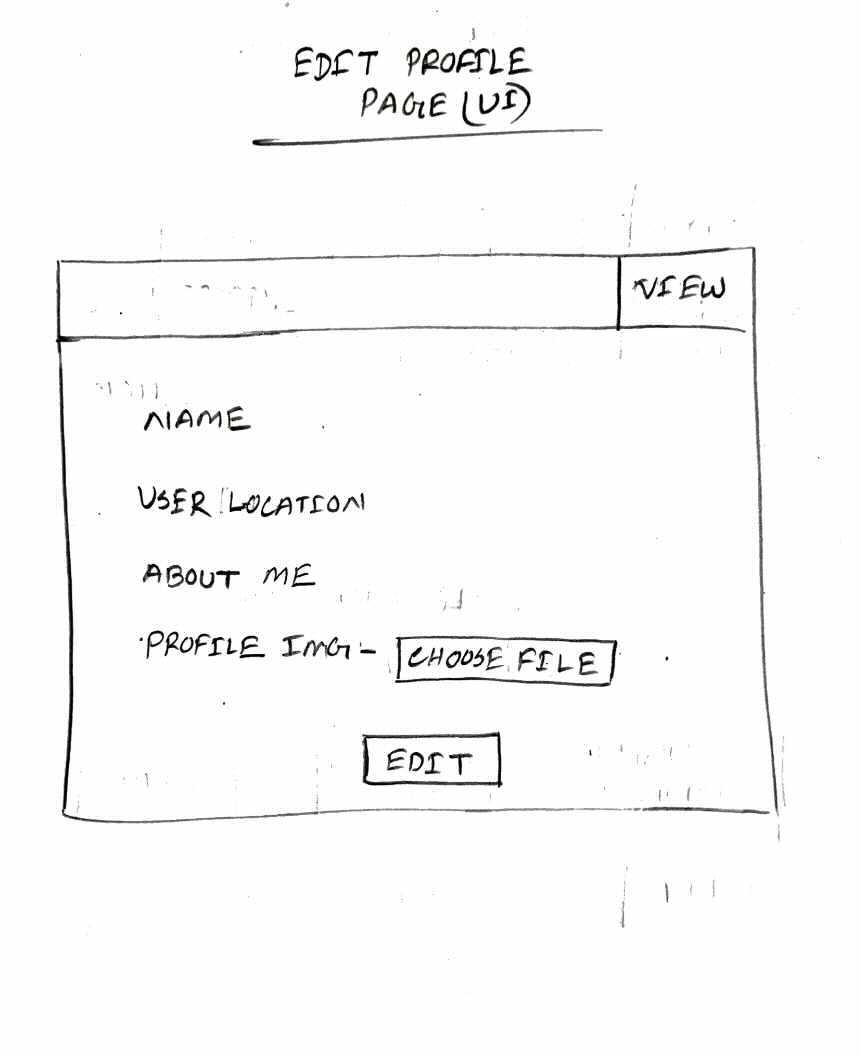 EDIT PROFILE
PAGE (UI)
VIEW
NAME
USER LOCATION
ABOUT ME
PROFILE IMG - CHOOSE FILE
EDIT